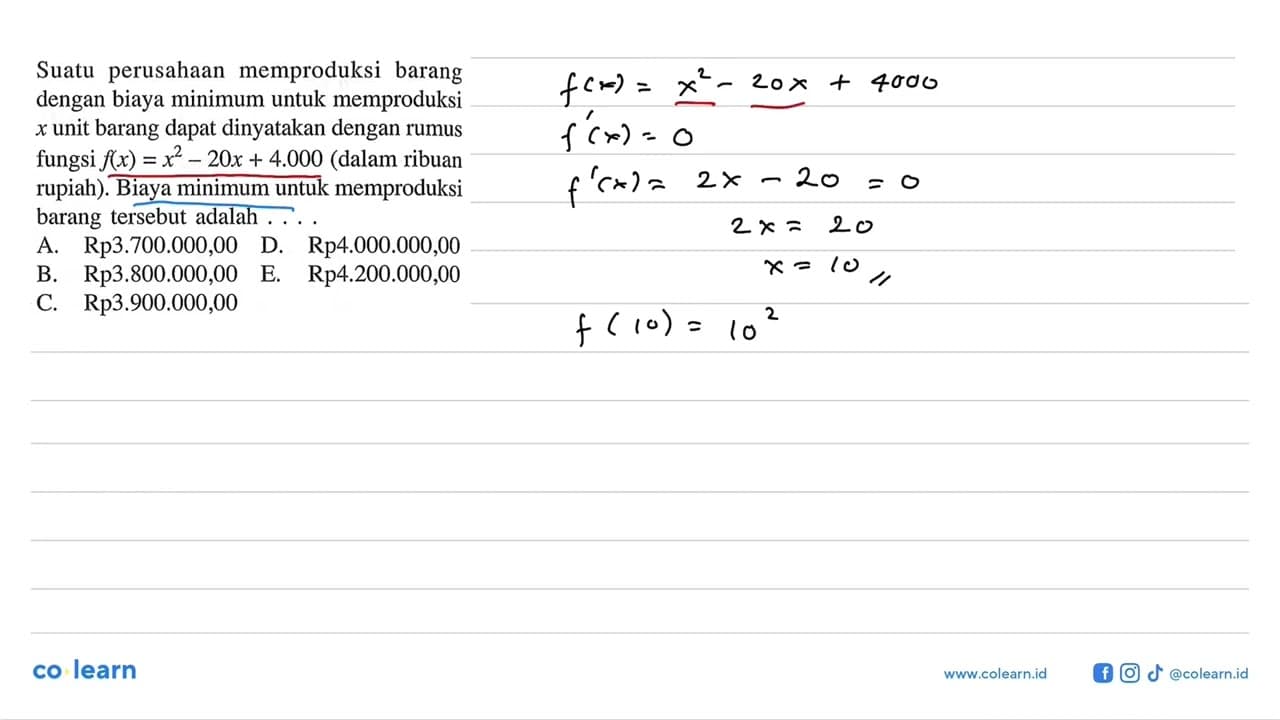 Suatu perusahaan memproduksi barang
dengan biaya minimum untuk memproduksi
x unit barang dapat dinyatakan dengan rumus
fungsi f(x) = x² – 20x + 4.000 (dalam ribuan
rupiah). Biaya minimum untuk memproduksi
barang tersebut adalah . . . .
A. Rp3.700.000,00 D. Rp4.000.000,00
B. Rp3.800.000,00 E. Rp4.200.000,00
C. Rp3.900.000,00
f(x) = x² - 20x + 4000
f'(x) = 0
f'(x) = 2x - 20 = 0
2x = 20
x = 10 //
f(10) = 10²
co learn
www.colearn.id
@colearn.id